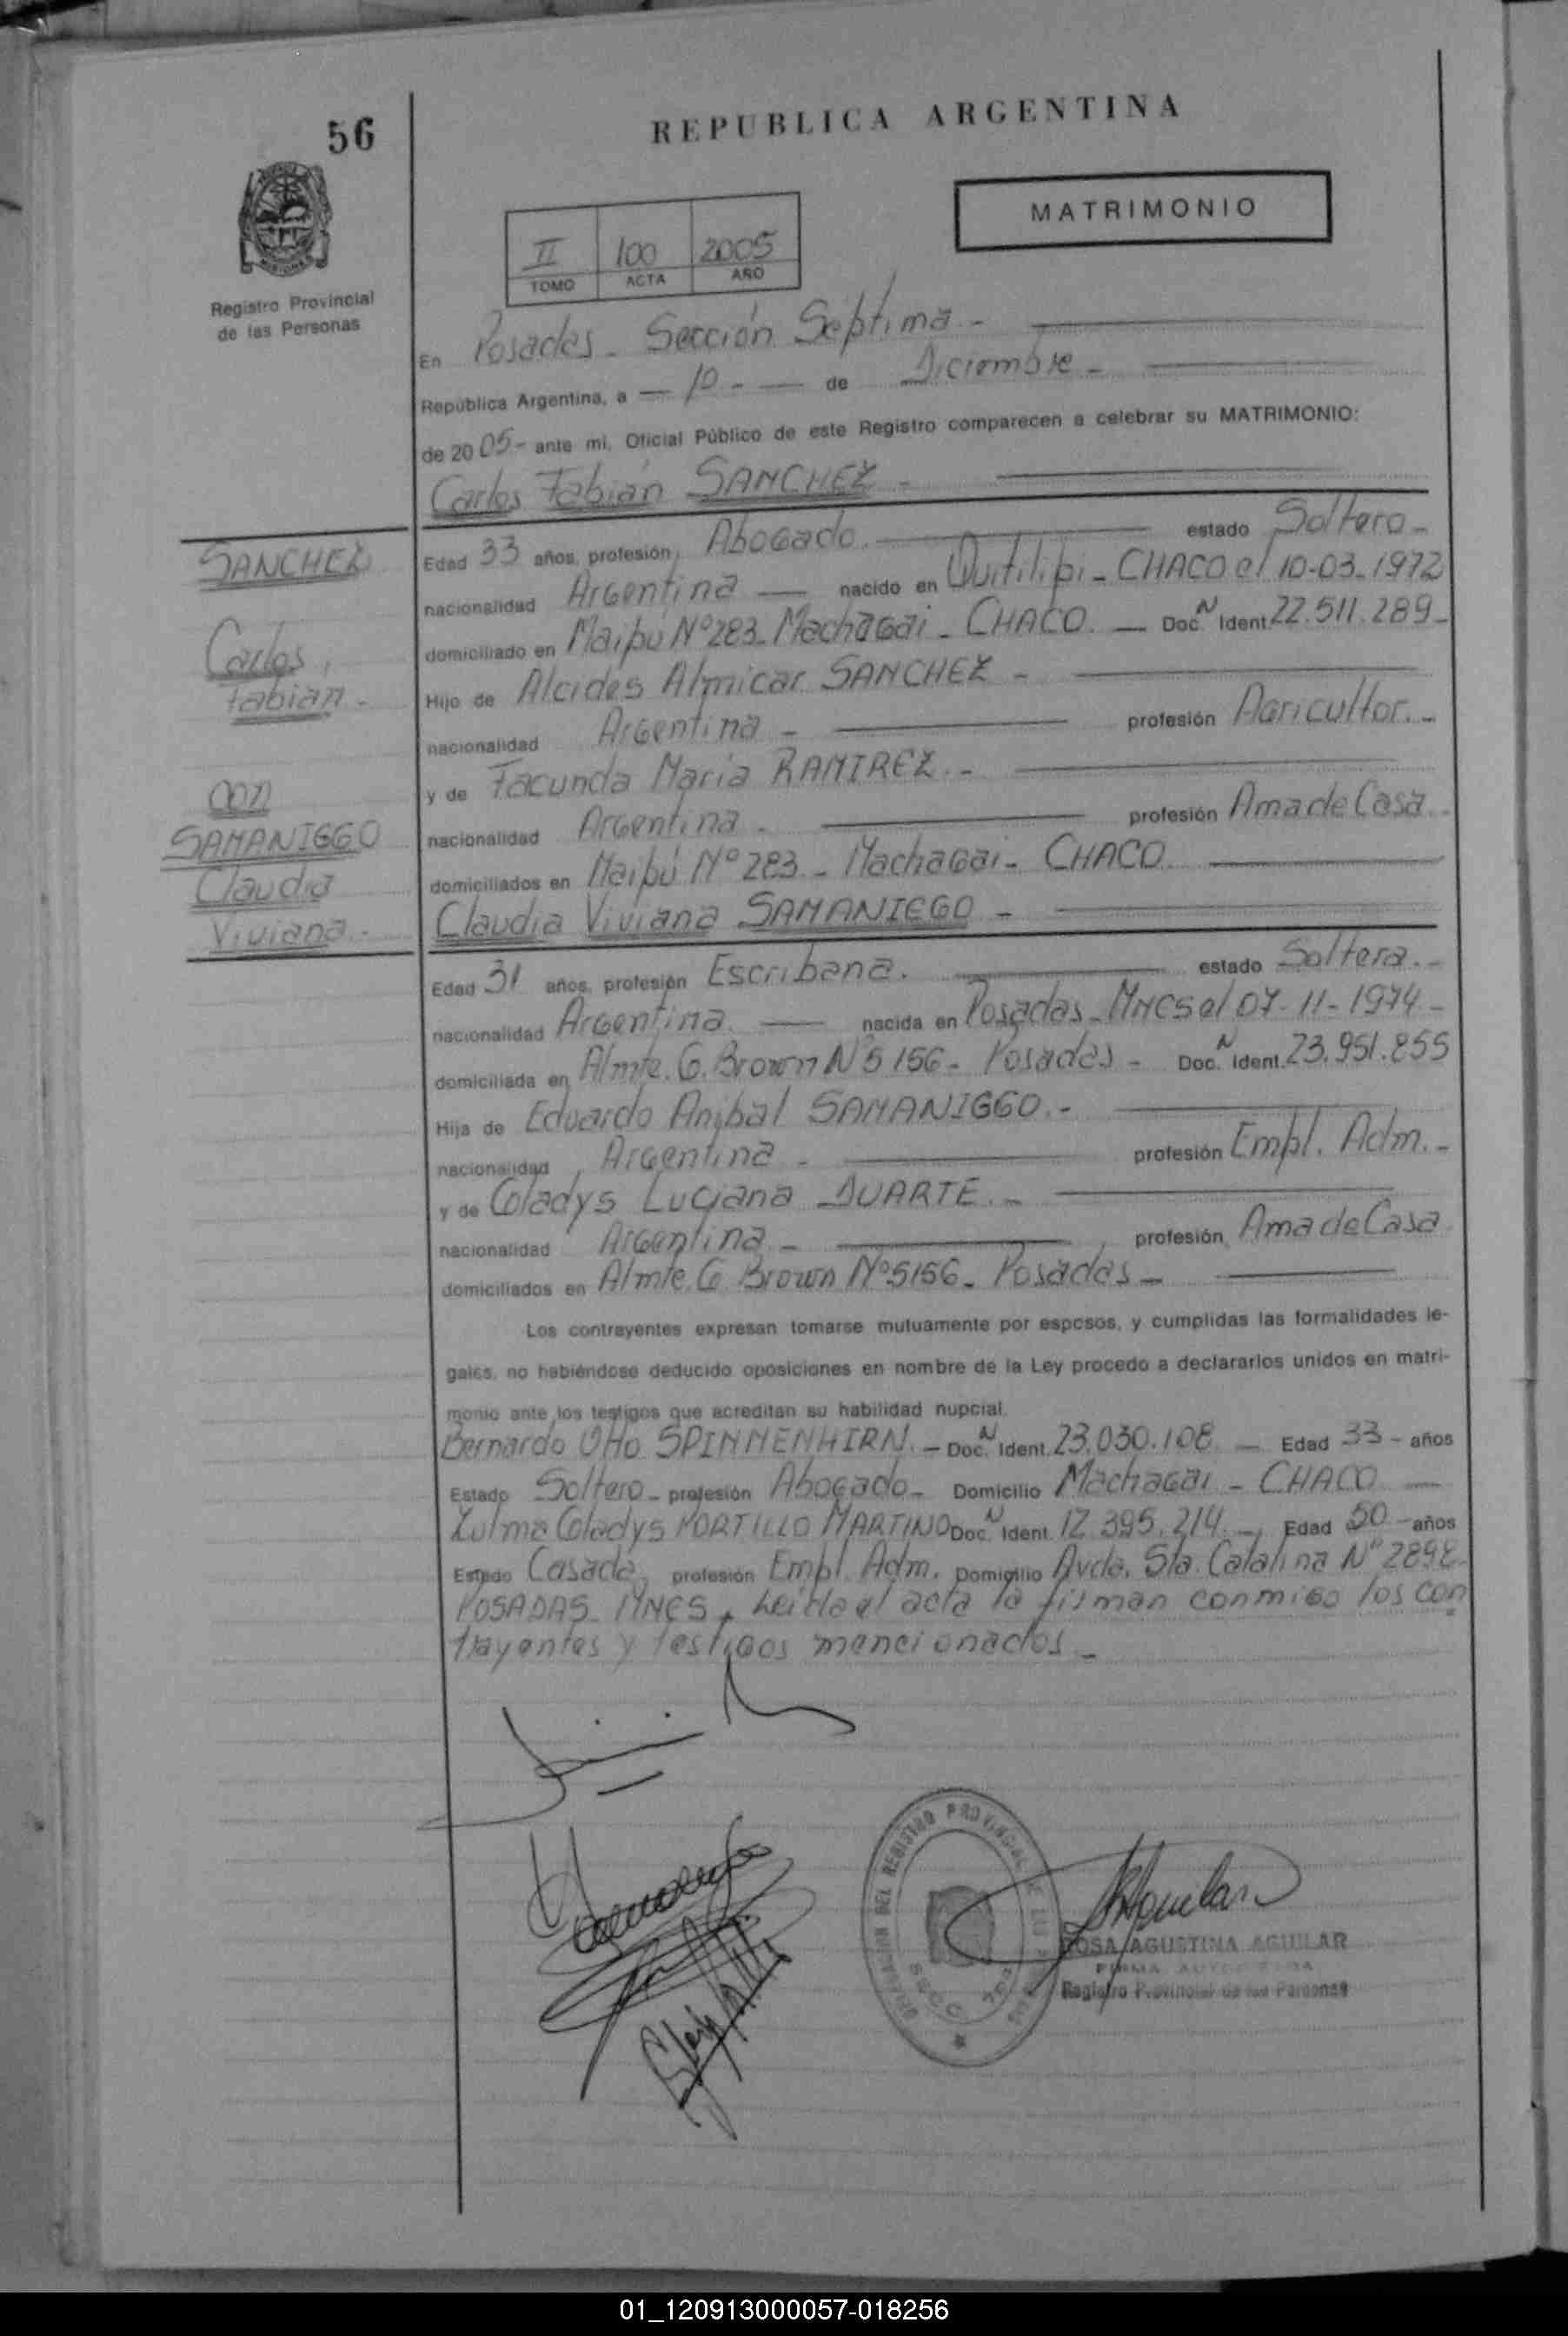 56
REPUBLICA ARGENTINA
MATRIMONIO
II 100 2005
TOMO ACTA AÑO
Registro Provincial
de las Personas
En Posadas - Sección Séptima -
República Argentina, a - 10 - de Diciembre -
de 2005 - ante mi, Oficial Público de este Registro comparecen a celebrar su MATRIMONIO:
Carlos Fabián SANCHEZ -
SANCHEZ
Carlos
Fabián -
con
SAMANIEGO
Claudia
Viviana -
Edad 33 años, profesión, Abogado. estado Soltero -
nacionalidad Argentina - nacido en Quitilipi - CHACO el 10-03-1972
domiciliado en Maipú Nº 283 - Machagai - CHACO. - Doc. N Ident. 22.511.289 -
Hijo de Alcides Almicar SANCHEZ -
nacionalidad Argentina - profesión Agricultor. -
y de Facunda Maria RAMIREZ. -
nacionalidad Argentina - profesión Ama de Casa
domiciliados en Maipú Nº 283 - Machagai - CHACO
Claudia Viviana SAMANIEGO -
Edad 31 años, profesión Escribana. estado Soltera. -
nacionalidad Argentina - nacida en Posadas - MNES el 07-11-1974 -
domiciliada en Almte. G. Brown Nº 5156 - Posadas - Doc. N Ident. 23.951.855
Hija de Eduardo Anibal SAMANIEGO. -
nacionalidad Argentina - profesión Empl. Adm. -
y de Gladys Luciana DUARTE. -
nacionalidad Argentina - profesión Ama de Casa
domiciliados en Almte. G. Brown Nº 5156 - Posadas -
Los contrayentes expresan tomarse mutuamente por esposos, y cumplidas las formalidades le-
gales, no habiéndose deducido oposiciones en nombre de la Ley procedo a declararlos unidos en matri-
monio ante los testigos que acreditan su habilidad nupcial.
Bernardo Otto SPINNENHIRN. - Doc. N Ident. 23.030.108 - Edad 33 - años
Estado Soltero - profesión Abogado - Domicilio Machagai - CHACO -
Zulma Gladys PORTILLO MARTINO Doc. N Ident. 12.395.214 - Edad 50 - años
Estado Casada, profesión Empl. Adm. Domicilio Avda. Sta. Catalina Nº 2898
POSADAS - MNES. Leida el acta la firman conmigo los con
trayentes y testigos mencionados -
DELEGACION DEL REGISTRO PROVINCIAL DE LAS
SECC. 7ma
ROSA AGUSTINA AGUILAR
FIRMA AUTORIZADA
Registro Provincial de las Personas
01_120913000057-018256